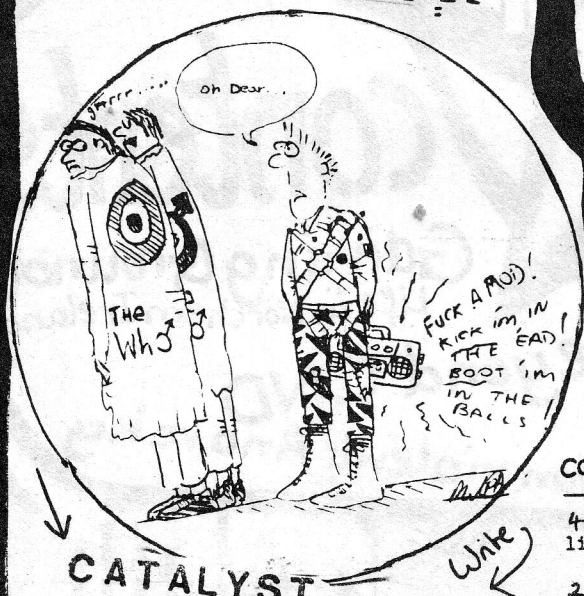 grrrr......
Oh Dear...
THE
Who
FUCK A MOD!
KICK im IN
THE EAD!
BOOT 'IM
IN THE
BALLS!
Write
CATALYST
CO
4
li